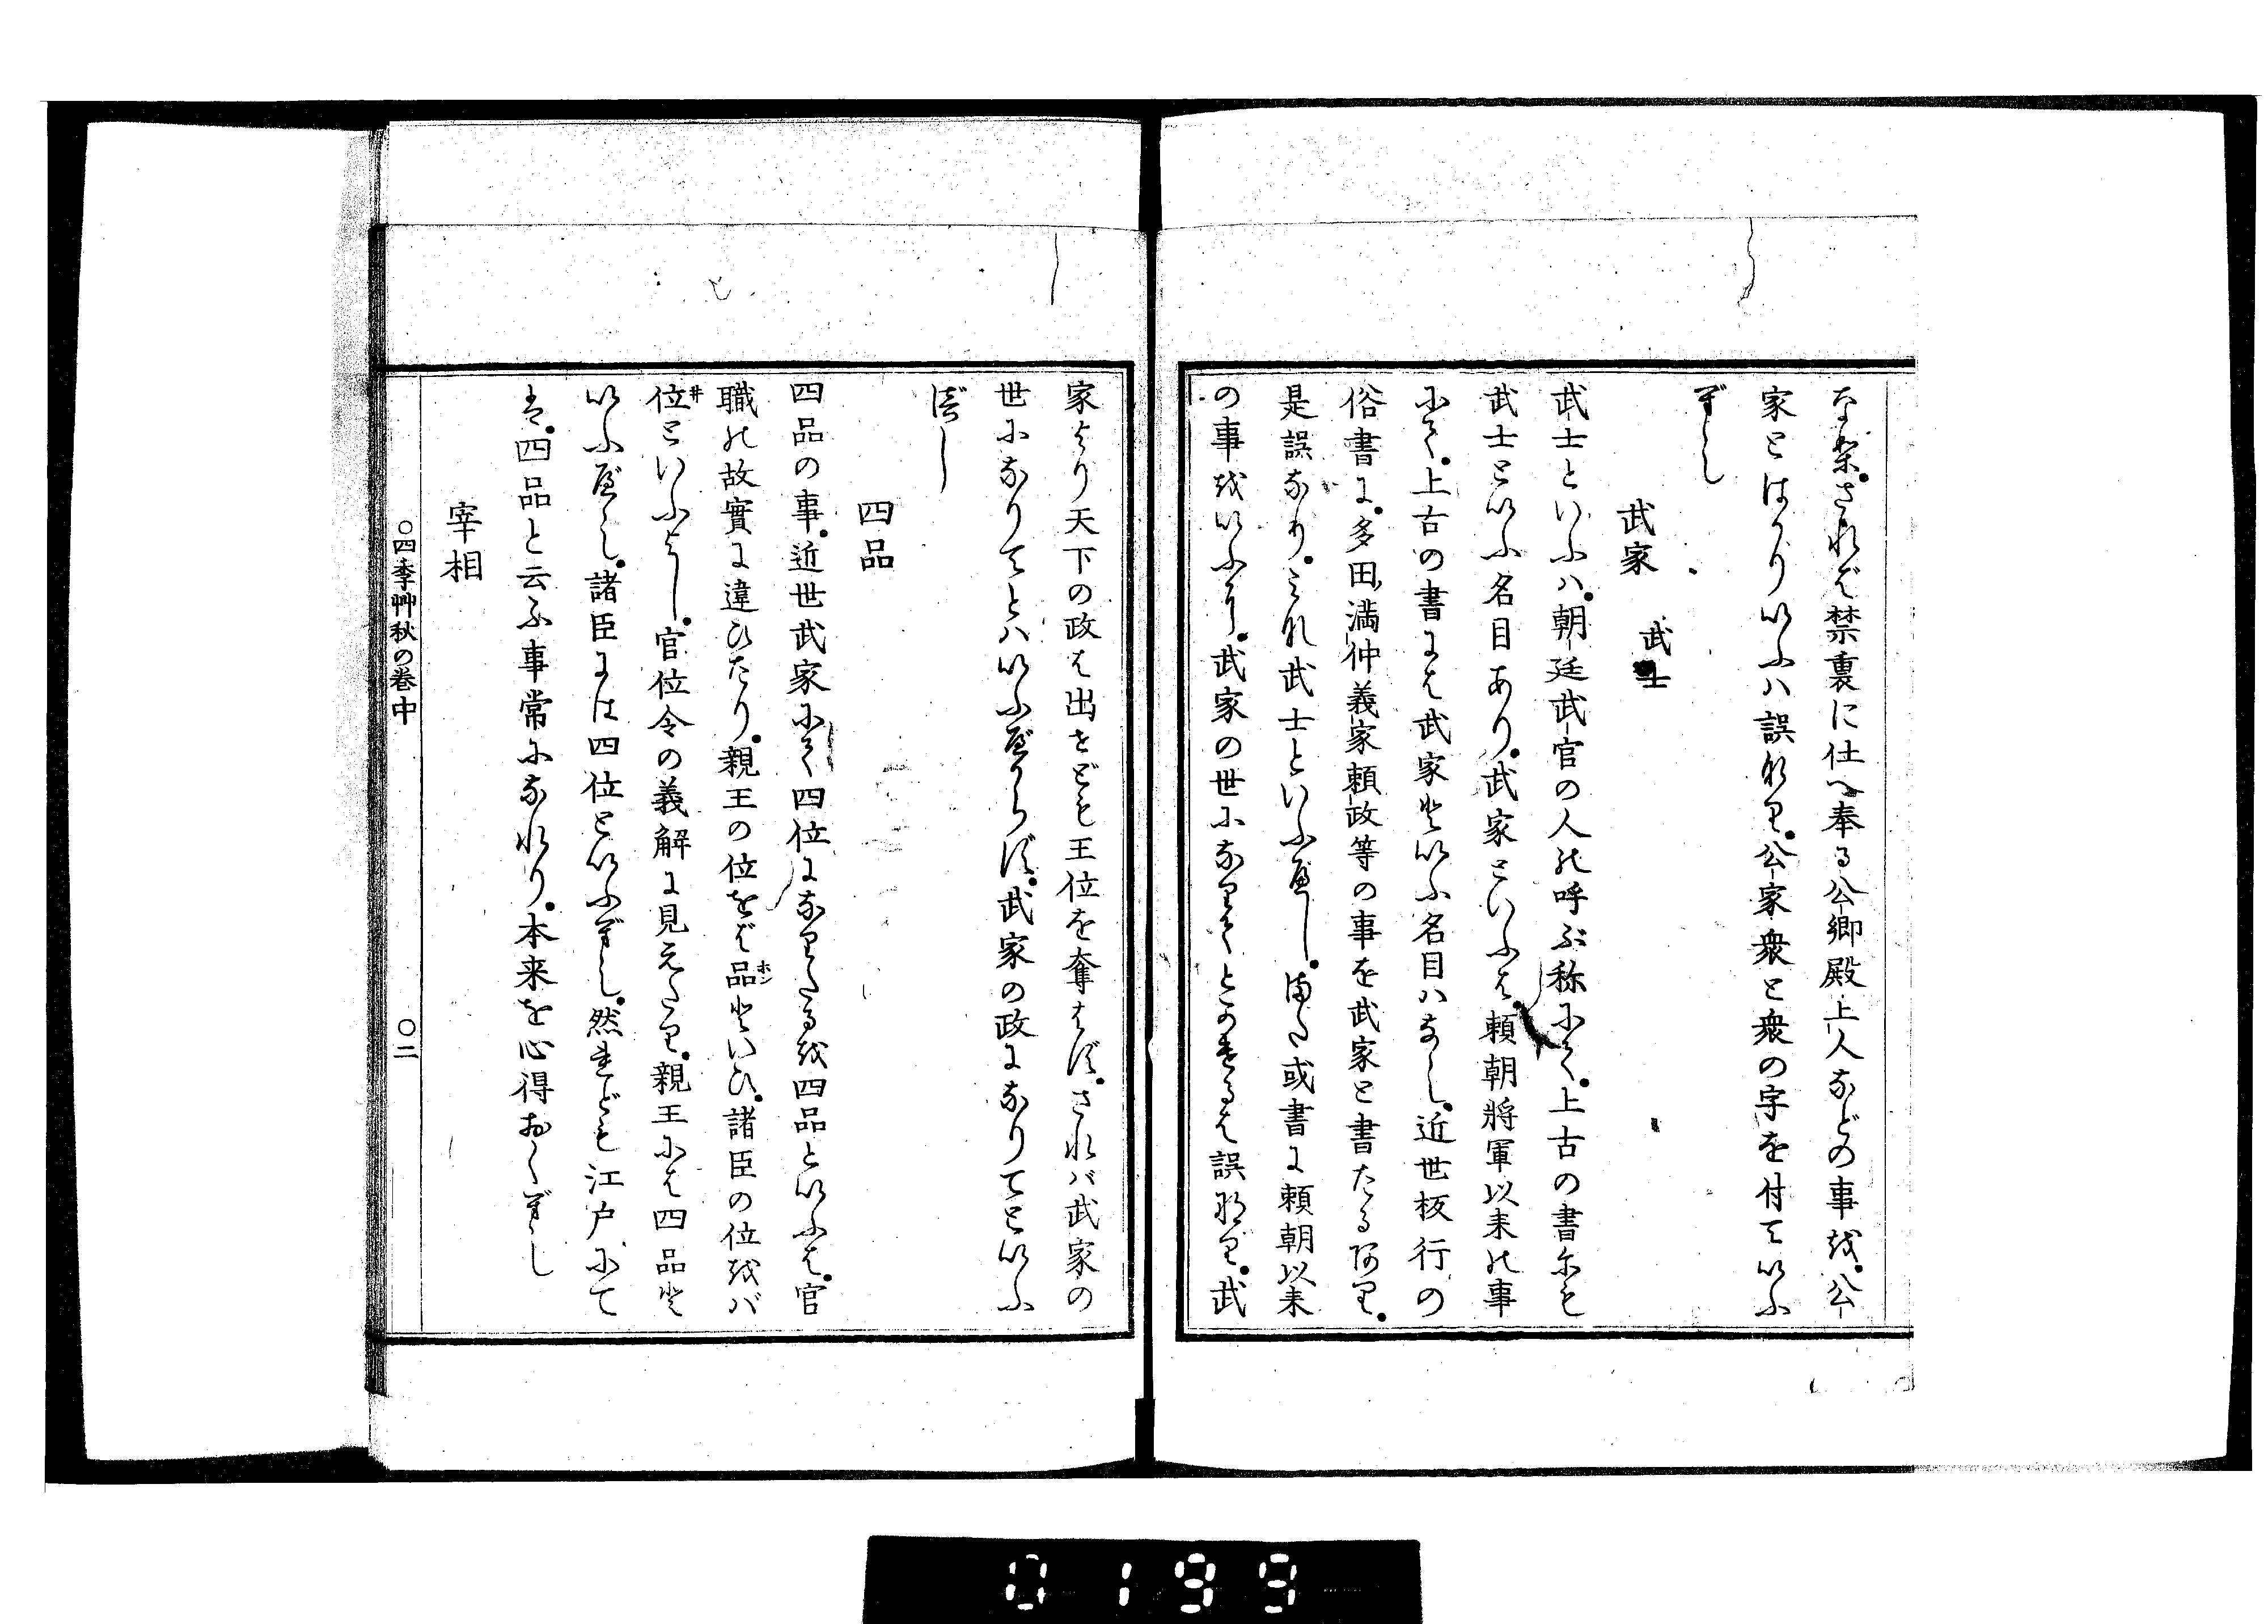 なり。されば禁裏に仕へ奉る公卿殿上人などの事を。公
家とばかりいふハ誤なり。公家衆と衆の字を付ていふ
べし
武家　武士
武士といふハ。朝廷武官の人の呼ぶ称にて。上古の書にも
武士といふ名目あり。武家といふは。頼朝将軍以来の事
にて。上古の書には武家といふ名目ハなし。近世板行の
俗書に。多田満仲義家頼政等の事を武家と書たるあり。
是誤なり。これ武士といふべし。また或書に頼朝以来
の事をいふに。武家の世になりてとかけるは誤なり。武
家より天下の政は出せども王位を奪はず。されバ武家の
世になりてとハいふべからず。武家の政になりてといふ
べし
四品
四品の事。近世武家にて四位になりたるを四品といふは。官
職の故實に違ひたり。親王の位をば品ホンといひ。諸臣の位をバ
位井といふよし。官位令の義解に見えたり。親王には四品と
いふべし。諸臣には四位といふべし。然れども江戸にて
は。四品と云ふ事常になれり。本来を心得おくべし
宰相
○四季艸秋の巻中　○二
0199